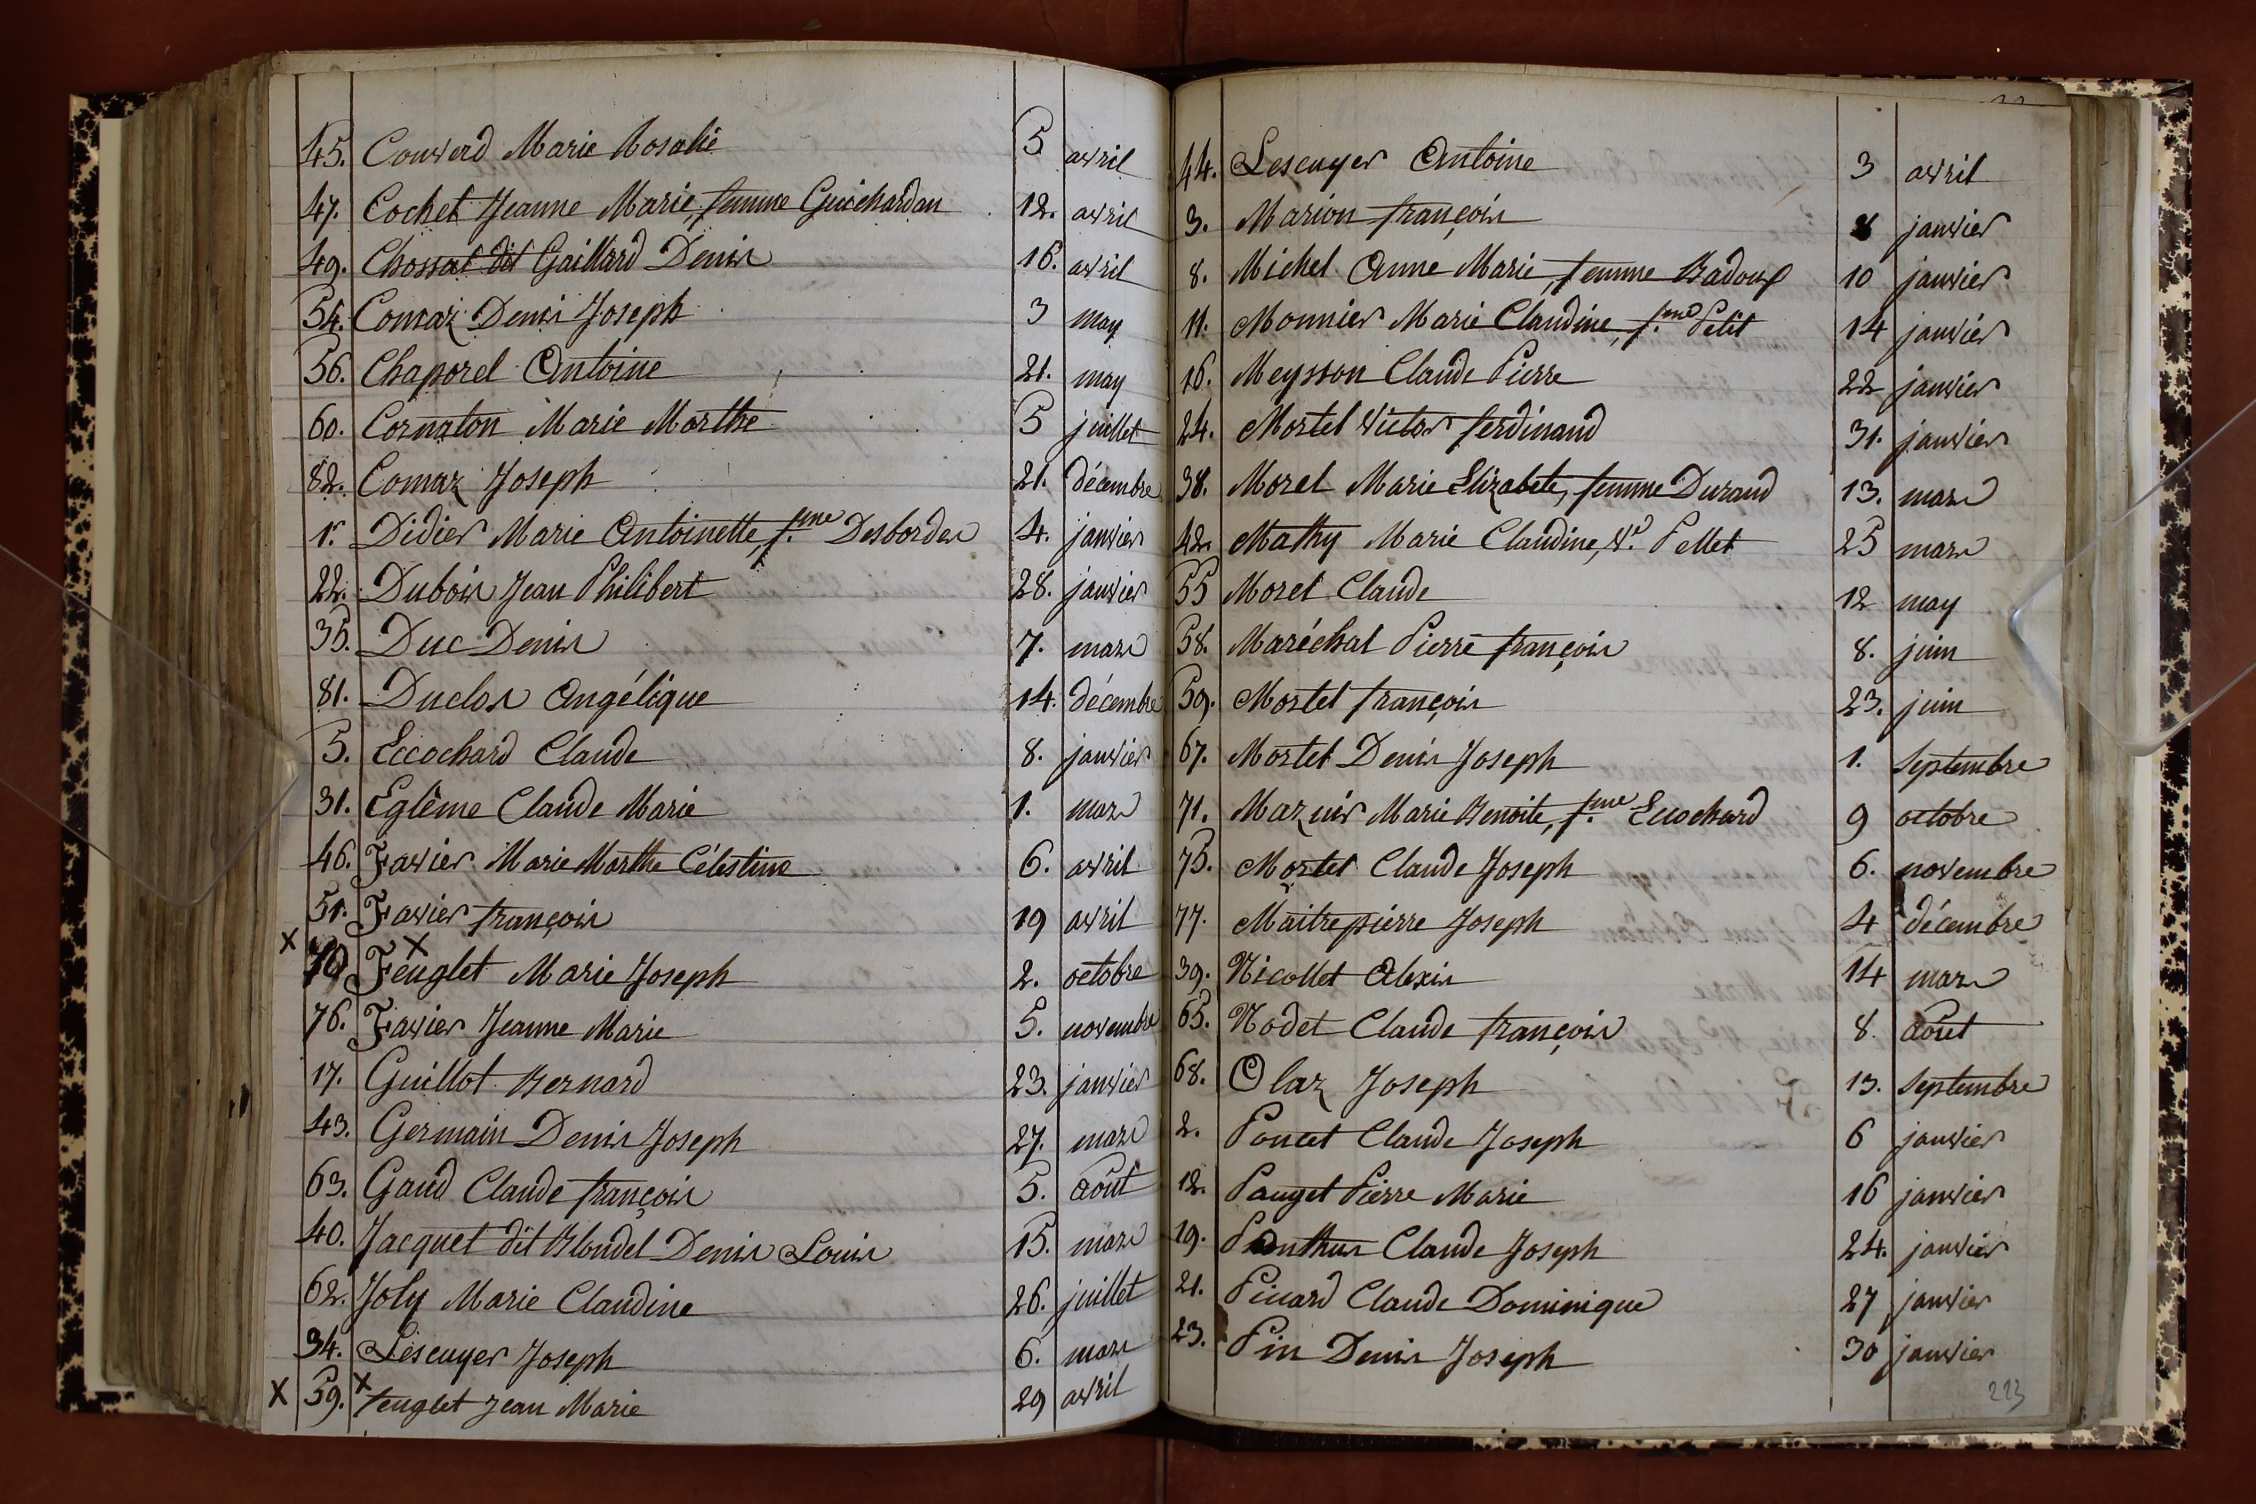 45. Couverd Marie Rosalie 5 avril
47. Cochet Jeanne Marie, femme Guichardan 12. avril
49. Chossat dit Gaillard Denis 16. avril
54. Comaz Denis Joseph 3 may
56. Chaporel Antoine 21. may
60. Cornaton Marie Marthe 5 juillet
82. Comaz Joseph 21. décembre
1. Didier Marie Antoinette, f.me Desbordes 4. janvier
22. Dubois Jean Philibert 28. janvier
35. Duc Denis 7. mars
81. Duclos Angélique 14. décembre
5. Eccochard Claude 8. janvier
31. Eglême Claude Marie 1. mars
46. Favier Marie Marthe Célestine 6. avril
51. Favier françois 19 avril
X 70 X Fenglet Marie Joseph 2. octobre
76. Favier Jeanne Marie 5. novembre
17. Guillot Bernard 23. janvier
43. Germain Denis Joseph 27. mars
63. Gaud Claude françois 5. août
40. Jacquet dit Blondel Denis Louis 15. mars
62. Joly Marie Claudine 26. juillet
34. Lescuyer Joseph 6. mars
X 59. X fenglet Jean Marie 29 avril
44. Lescuyer Antoine 3 avril
3. Marion françois 8 janvier
8. Michel Anne Marie, femme Badoux 10 janvier
11. Monnier Marie Claudine, f.me Petit 14 janvier
16. Meysson Claude Pierre 22 janvier
24. Mortel Victor ferdinand 31. janvier
38. Morel Marie Elizabete, femme Durand 13. mars
42. Mathy Marie Claudine, Ve. Pellet 25 mars
55 Morel Claude 12 may
58. Maréchal Pierre françois 8. juin
59. Mortel françois 23. juin
67. Mortel Denis Joseph 1. septembre
71. Mazuir Marie Benoite, f.me Ecochard 9 octobre
75. Mortel Claude Joseph 6. novembre
77. Maitrepierre Joseph 4 décembre
39. Nicollet Alexis 14 mars
65. Nodet Claude françois 8. août
68. Olaz Joseph 13. septembre
2. Poncet Claude Joseph 6 janvier
12. Pauget Pierre Marie 16 janvier
19. Panthus Claude Joseph 24. janvier
21. Picard Claude Dominique 27 janvier
23. Pin Denis Joseph 30 janvier
223